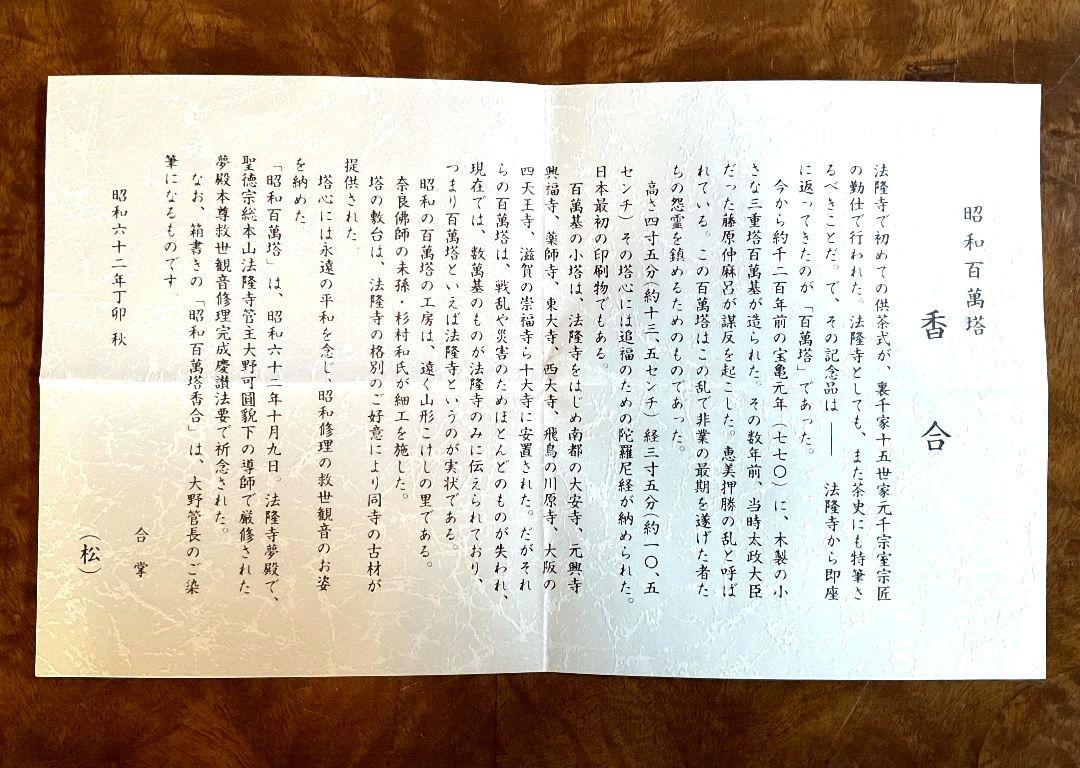 昭和百萬塔
香合
法隆寺で初めての供茶式が、裏千家十五世家元千宗室宗匠
の勤仕で行われた。法隆寺としても、また茶史にも特筆さ
るべきことだ。で、その記念品は――法隆寺から即座
に返ってきたのが「百萬塔」であった。
今から約千二百年前の宝亀元年(七七〇)に、木製の小
さな三重塔百萬基が造られた。その数年前、当時太政大臣
だった藤原仲麻呂が謀反を起こした。恵美押勝の乱と呼ば
れている。この百萬塔はこの乱で非業の最期を遂げた者た
ちの怨霊を鎮めるためのものであった。
高さ四寸五分(約十三、五センチ)経三寸五分(約一〇、五
センチ)その塔心には追福のための陀羅尼経が納められた。
日本最初の印刷物でもある。
百萬基の小塔は、法隆寺をはじめ南都の大安寺、元興寺
興福寺、薬師寺、東大寺、西大寺、飛鳥の川原寺、大阪の
四天王寺、滋賀の崇福寺ら十大寺に安置された。だがそれ
らの百萬塔は、戦乱や災害のためほとんどのものが失われ、
現在では、数萬基のものが法隆寺のみに伝えられており、
つまり百萬塔といえば法隆寺というのが実状である。
昭和の百萬塔の工房は、遠く山形こけしの里である。
奈良佛師の末孫・杉村和氏が細工を施した。
塔の敷台は、法隆寺の格別のご好意により同寺の古材が
提供された。
塔心には永遠の平和を念じ、昭和修理の救世観音のお姿
を納めた。
「昭和百萬塔」は、昭和六十二年十月九日。法隆寺夢殿で、
聖徳宗総本山法隆寺管主大野可圓貌下の導師で厳修された
夢殿本尊救世観音修理完成慶讃法要で祈念された。
なお、箱書きの「昭和百萬塔香合」は、大野管長のご染
筆になるものです。
昭和六十二年丁卯 秋
合掌
(松)